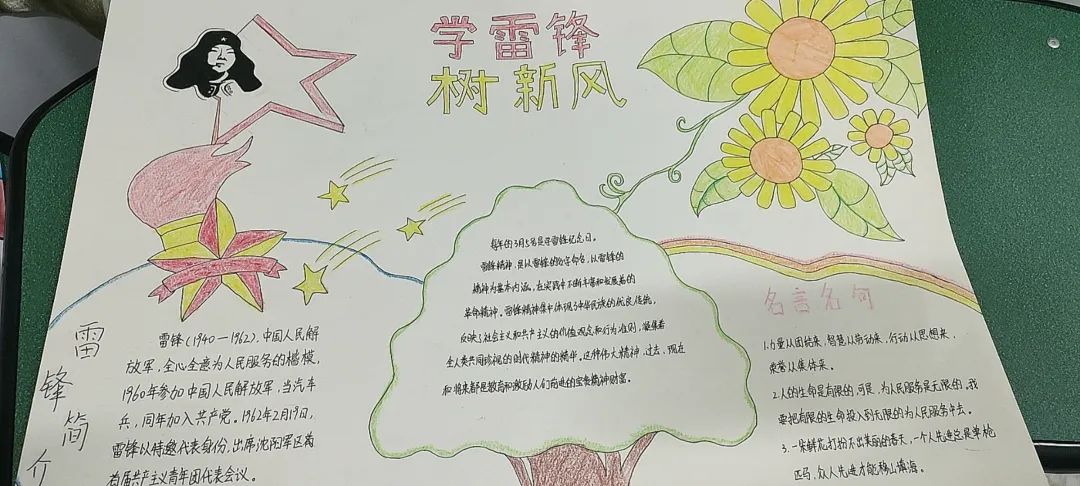 学雷锋
树新风
每年的3月5号是学雷锋纪念日。
雷锋精神，是以雷锋的名字命名，以雷锋的
精神为基本内涵，在实践中不断丰富和发展着的
革命精神。雷锋精神集中体现了中华民族的优良传统，
反映了社会主义和共产主义的价值观念和行为准则，凝集着
全人类共同珍视的时代精神的精华。这种伟大精神，过去、现在
和将来都是教育和激励人们前进的宝贵精神财富。
雷锋简介
雷锋（1940—1962），中国人民解
放军，全心全意为人民服务的楷模，
1960年参加中国人民解放军，当汽车
兵，同年加入共产党。1962年2月19日，
雷锋以特邀代表身份，出席沈阳军区首
首届共产主义青年团代表会议。
名言名句
1.力量从团结来，智慧从劳动来，行动从思想来，
荣誉从集体来。
2.人的生命是有限的，可是，为人民服务是无限的。我
要把有限的生命投入到无限的为人民服务中去。
3.一朵鲜花打扮不出美丽的春天，一个人先进总是单枪
匹马，众人先进才能移山填海。